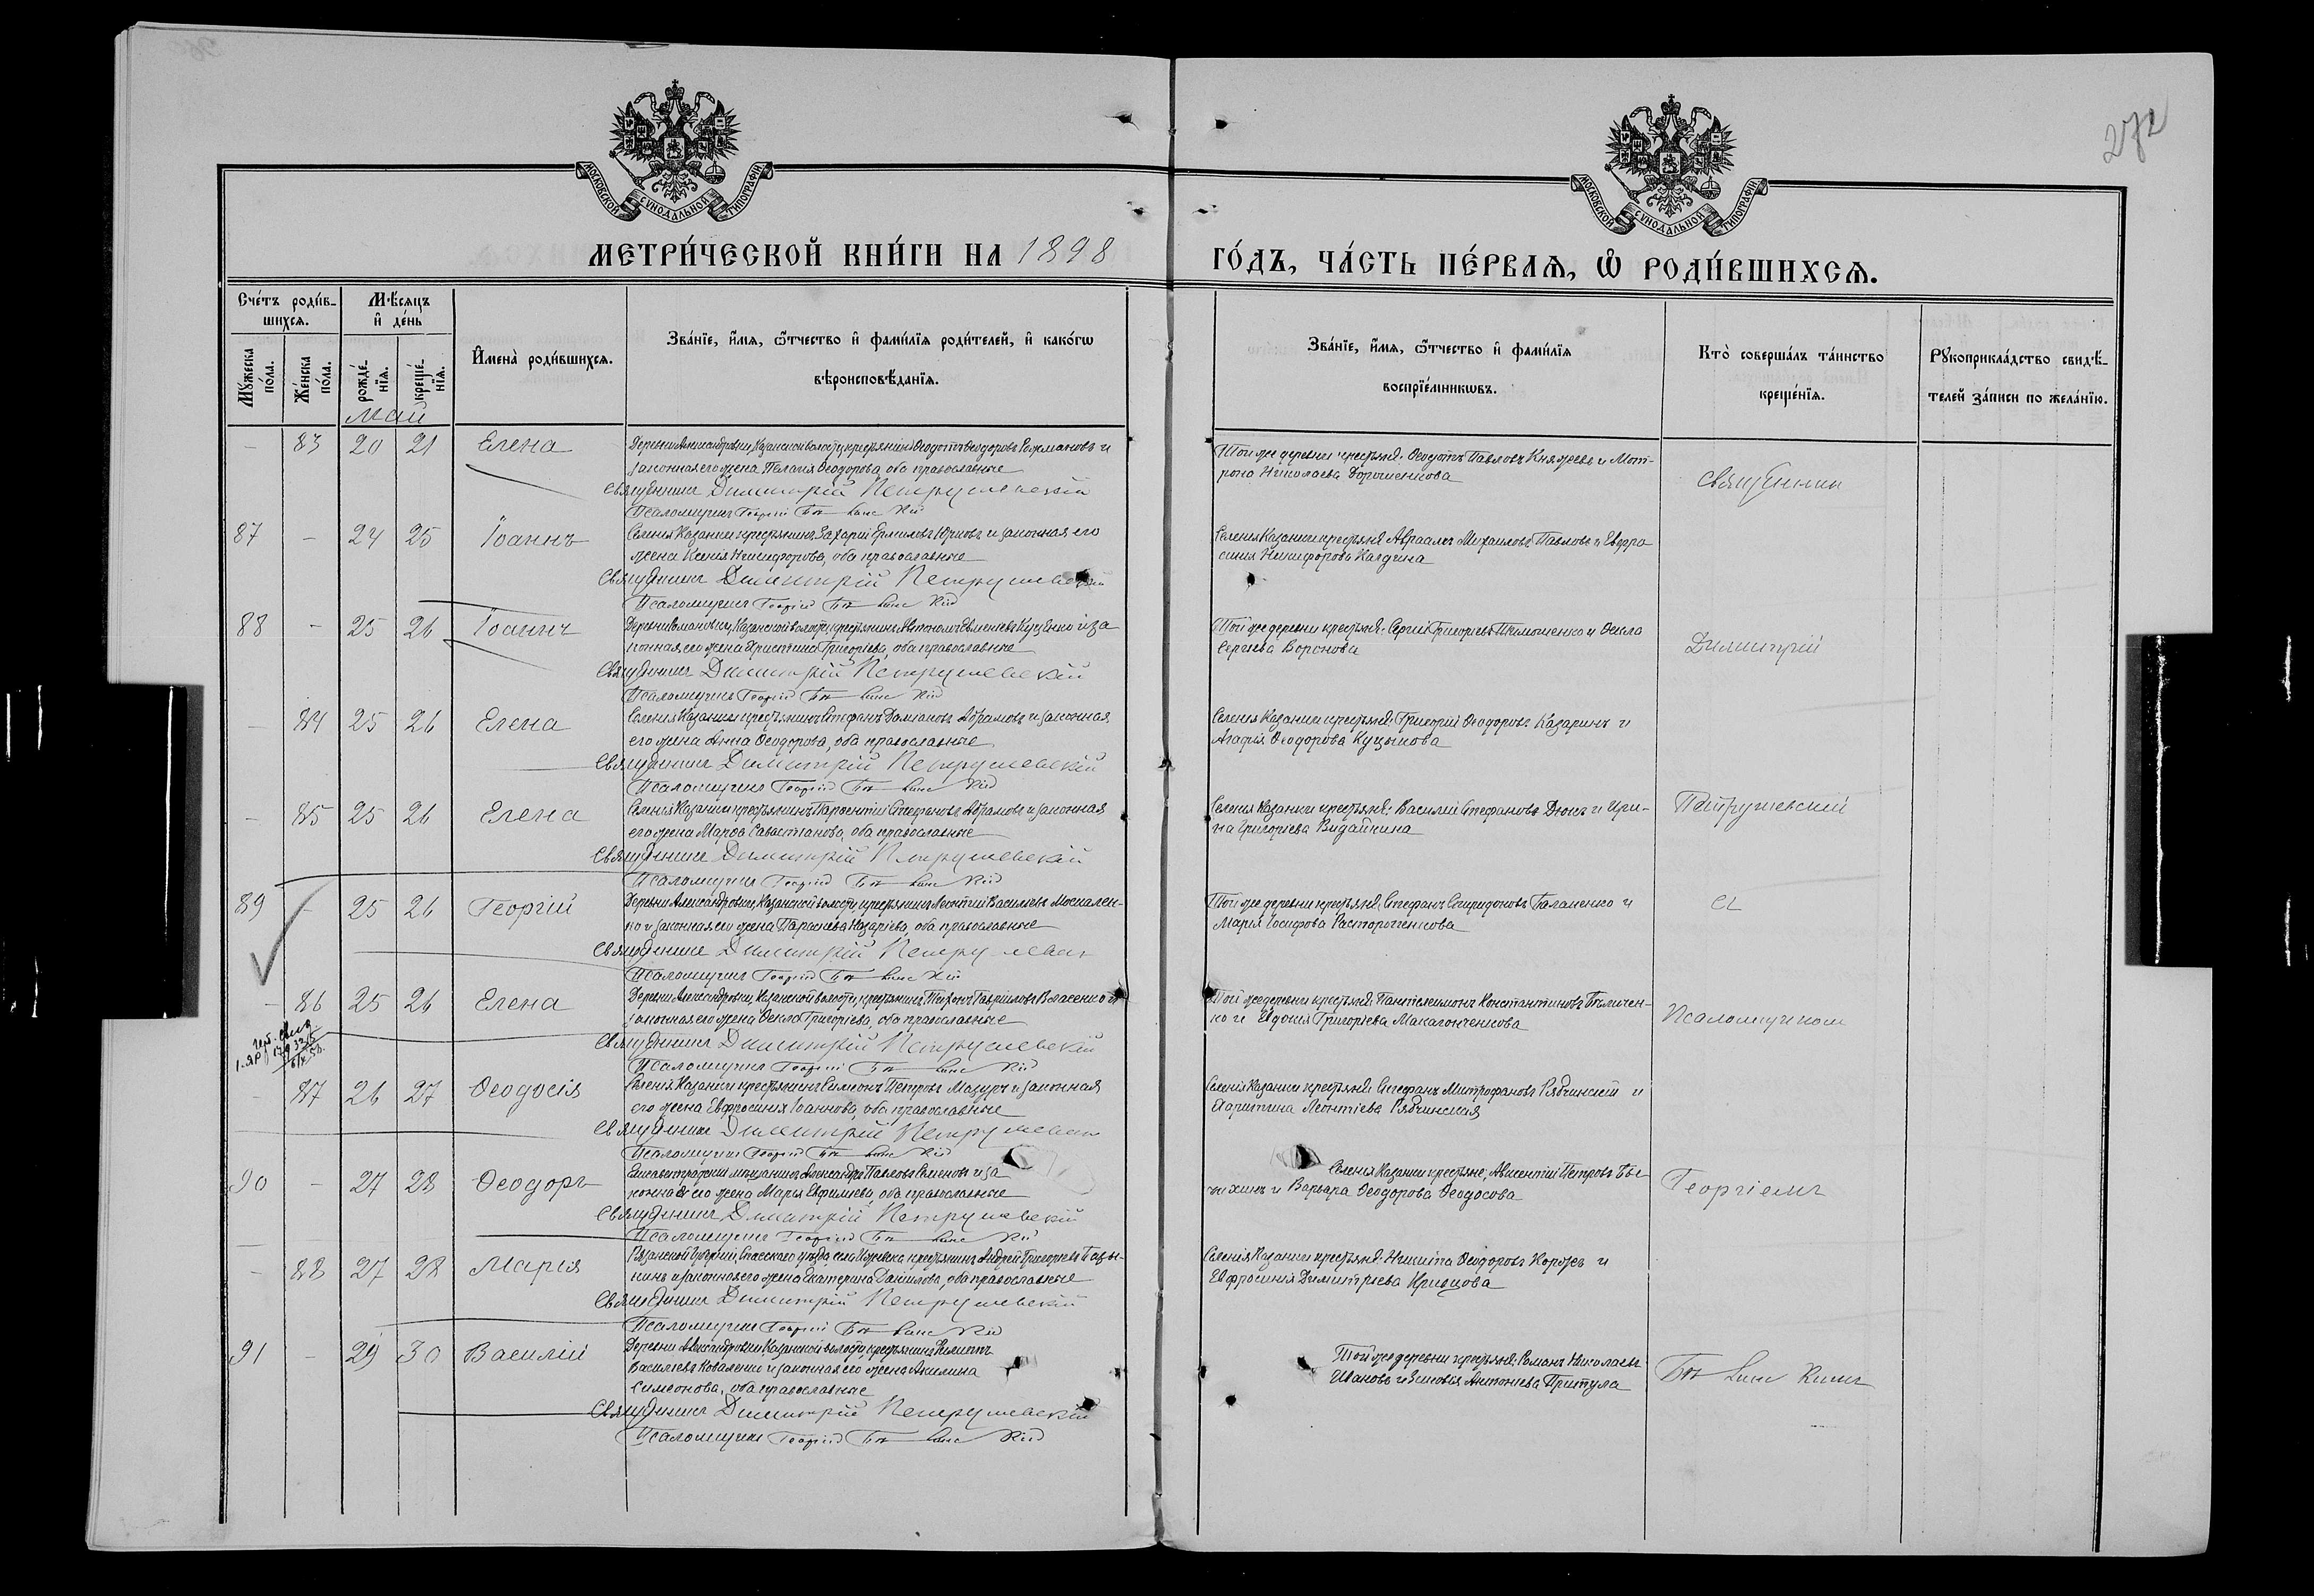 272
МОСКОВСКОЙ СУНОДАЛЬНОЙ ТИПОГРАФІИ
МОСКОВСКОЙ СУНОДАЛЬНОЙ ТИПОГРАФІИ
МЕТРИ́ЧЕСКОЙ КНИ́ГИ НА 1898
ГО́ДЪ, ЧА́СТЬ ПЕ́РВАѦ, Ѡ РОДИ́ВШИХСѦ.
Счетъ роди́вшихсѧ.
Мꙋ́жеска по́ла.
Же́нска по́ла.
Мѣ́сѧцъ и҆ де́нь
рожде́нїѧ.
креще́нїѧ.
И҆мена̀ роди́вшихсѧ.
Зва́нїе, и҆́мѧ, ѻ҆́тчество и҆ фами́лїѧ роди́телей, и҆ како́гѡ
вѣроисповѣ́данїѧ.
Зва́нїе, и҆́мѧ, ѻ҆́тчество и҆ фами́лїѧ
воспрїе́мникѡвъ.
Кто̀ соверша́лъ та́инство
креще́нїѧ.
Рꙋкоприкла́дство свидѣ́-
телей за́писи по жела́нїю.
Май
– 83 20 21 Елена
Деревни Александровки, Казанской волости, крестьянинъ Ѳеодотъ Ѳеодоровъ и
законная его жена Пелагія Ѳеодорова, оба православные
Священникъ Димитрій Петрушевскій
Псаломщикъ Георгій
Той же деревни крестьяне: Ѳеодотъ Павловъ Княжевъ и Мот-
рона Николаева Дорошенкова
Священникъ
87 – 24 25 Іоаннъ
Селенія Казанки крестьянинъ Захарій Ермиловъ Юрковъ и законная его
жена Ксенія Никифорова, оба православные
Священникъ Димитрій Петрушевскій
Псаломщикъ Георгій
Селенія Казанки крестьяне Авраамъ Михаиловъ Павловъ и Евфро
синія Никифорова
88 – 25 26 Іоаннъ
Деревни Романовки, Казанской волости, крестьянинъ Автономъ Евменіевъ Куценко и за
конная его жена Христина Григоріева, оба православные
Священникъ Димитрій Петрушевскій
Псаломщикъ Георгій
Той же деревни крестьяне: Сергій Григорьевъ Тимошенко и Ѳекла
Сергіева Воронова
Димитрій
– 84 25 26 Елена
Селенія Казанки крестьянинъ Стефанъ Даміановъ Абрамовъ и законная
его жена Анна Ѳеодорова, оба православные
Священникъ Димитрій Петрушевскій
Псаломщикъ Георгій
Селенія Казанки крестьяне: Григорій Ѳеодоровъ Казаринъ и
Агафія Ѳеодорова Куцынова
– 85 25 26 Елена
Селенія Казанки крестьянинъ Парѳентій Стефановъ Абрамовъ и законная
его жена Марѳа Савастіанова, оба православные
Священникъ Димитрій Петрушевскій
Псаломщикъ Георгій
Селенія Казанки крестьяне: Василій Стефановъ Дюкъ и Ири-
на Григоріева Видайкина
Петрушевскій
89 – 25 26 Георгій
Деревни Александровки, Казанской волости, крестьянинъ Леонтій Васильевъ Москален-
ко и законная его жена Параскева Назаріева, оба православные
Священникъ Димитрій
Псаломщикъ Георгій
Той же деревни крестьяне: Стефанъ Спиридоновъ Галаненко и
Марія Іосифова Расторгченкова
съ
– 86 25 26 Елена
Деревни Александровки, Казанской волости, крестьянинъ Тихонъ Гавриловъ Власенко и
законная его жена Ѳекла Григоріева, оба православные
Священникъ Димитрій Петрушевскій
Псаломщикъ Георгій
Той же деревни крестьяне: Пантелеимонъ Константиновъ Величен-
ко и Евдокія Григоріева Макагонченкова
Псаломщикомъ
– 87 26 27 Ѳеодосія
Селенія Казанки крестьянинъ Симеонъ Петровъ Мазуръ и законная
его жена Евфросинія Іоаннова, оба православные
Священникъ Димитрій
Псаломщикъ Георгій
Селенія Казанки крестьяне: Стефанъ Митрофановъ Рябчинскій и
Харитина Леонтіева Рябчинская
90 – 27 28 Ѳеодоръ
Елисаветградскій мѣщанинъ Александръ Павловъ Семеновъ и за
конная его жена Марія Евфиміева, оба православные
Священникъ Димитрій Петрушевскій
Псаломщикъ Георгій
Селенія Казанки крестьяне: Авксентій Петровъ Бы-
чихинъ и Варвара Ѳеодорова Ѳеодосова
Георгіемъ
– 88 27 28 Марія
Рязанской губерніи, Спасскаго уѣзда, села Ижевска крестьянинъ Андрей Григорьевъ
и законная его жена Екатерина Даніилова, оба православные
Священникъ Димитрій Петрушевскій
Псаломщикъ Георгій
Селенія Казанки крестьяне: Никита Ѳеодоровъ и
Евфросинія Димитріева Кривцова
91 – 29 30 Василій
Деревни Александровки Казанской волости, крестьянинъ Филиппъ
Васильевъ Коваленко и законная его жена Акилина
Симеонова, оба православные
Священникъ Димитрій Петрушевскій
Псаломщикъ Георгій
Той же деревни крестьяне: Романъ Николаевъ
Ивановъ и Зиновія Антоніева Притула